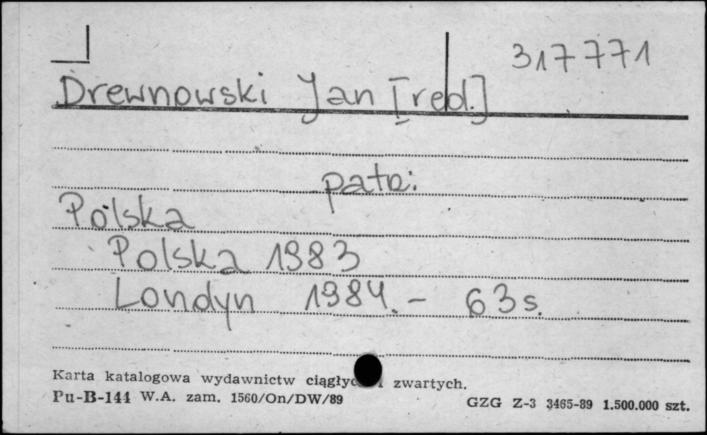 317771
Drewnowski Jan [red.]
patrz:
Polska
Polska 1983
Londyn 1984. - 63 s.
Karta katalogowa wydawnictw zwartych.
Pu-B-144 W.A. zam. 1560/On/DW/89 GZG Z-3 3465-89 1.500.000 szt.